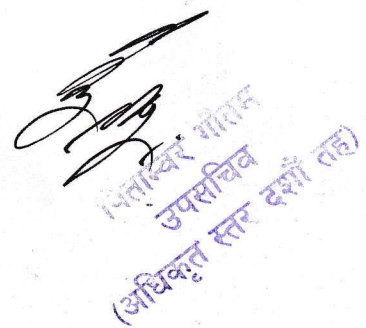 पिताम्बर गौतम
उपसचिव
(अधिकृत स्तर दशौं तह)